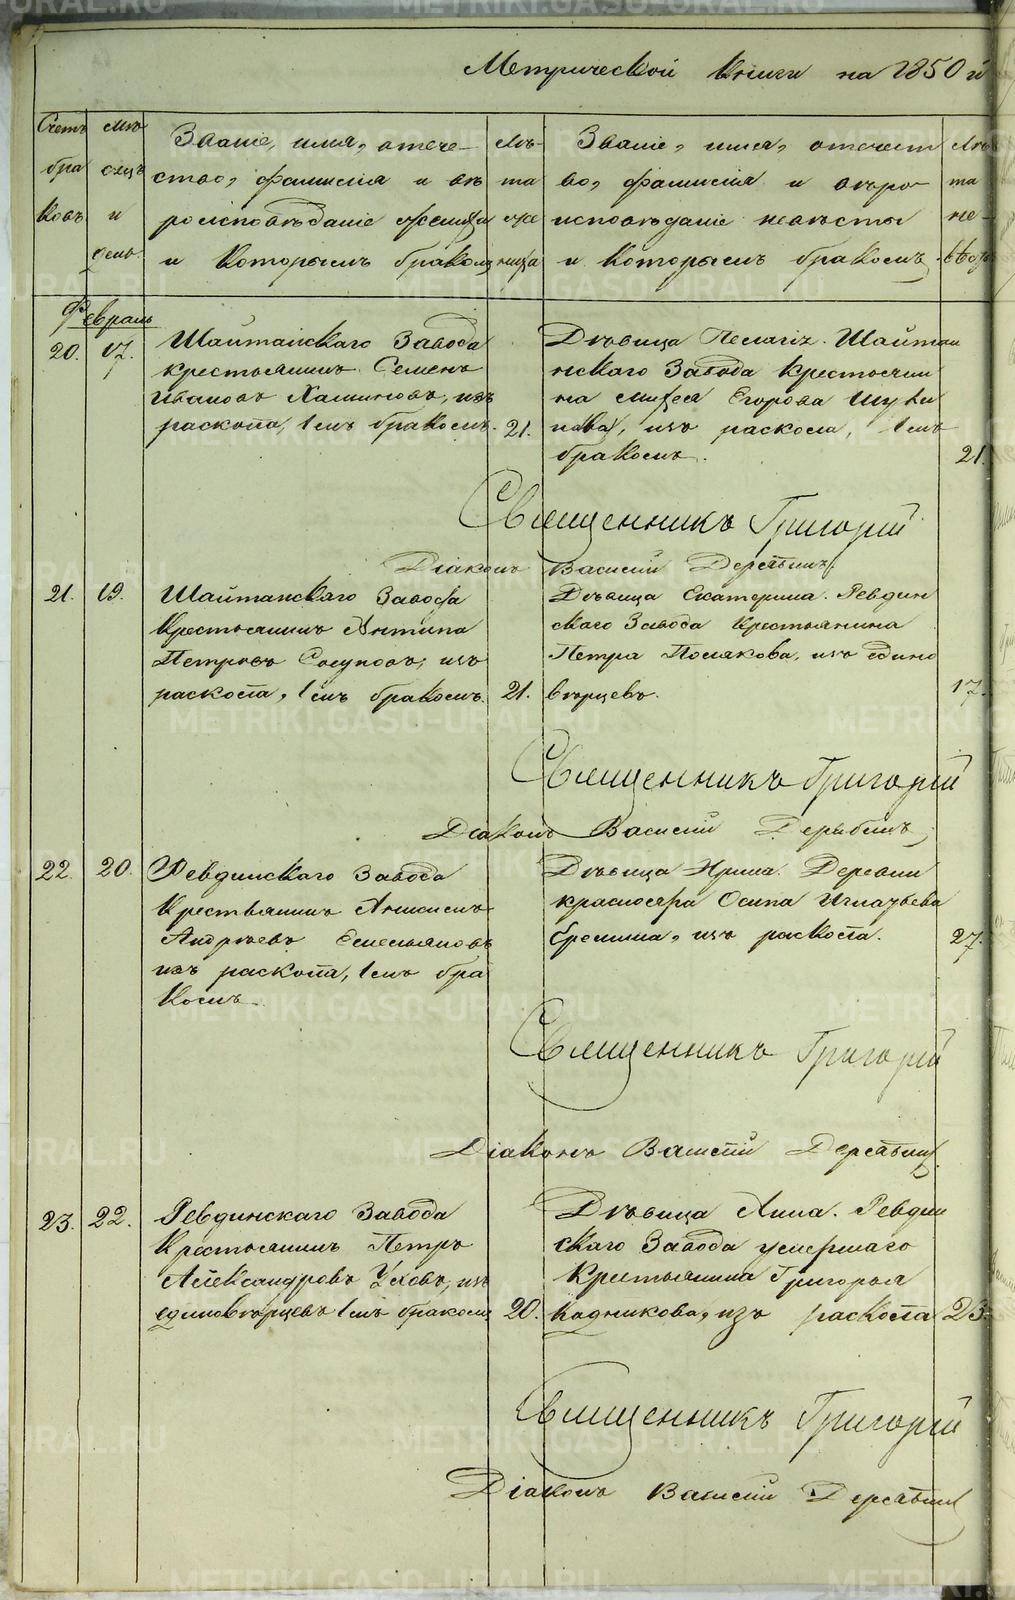 Метрической книги на 1850 й
Счетъ бра ковъ
мѣ сяцъ и день.
Званіе, имя, отече–
ство, фамилія и вѣ
роисповѣданіе жениха
и которымъ бракомъ
лѣ– та же ниха
Званіе, имя, отечест
во, фамилія и вѣро–
исповѣданіе невѣсты
и которымъ бракомъ
Лѣ та не–
Февраль
20. 17.
Шайтанскаго Завода
крестьянинъ Семенъ
Ивановъ, изъ
раскола, 1мъ бракомъ. 21.
Дѣвица Пелагія. Шайтан
нскаго Завода Крестьянин
на Егорова
изъ раскола, 1мъ
бракомъ. 21.
Священникъ Григорій
Діаконъ Василій Дерябинъ
21. 19.
Шайтанскаго Завода
Крестьянинъ Антипа
Петровъ изъ
раскола, 1мъ бракомъ. 21.
Дѣвица Екатерина. Ревдин
скаго Завода Крестьянина
Петра Полякова, изъ едино
вѣрцевъ. 17.
Священникъ Григорій
Діаконъ Василій Дерябинъ
22. 20.
Ревдинскаго Завода
Крестьянинъ Анисимъ
Андрѣевъ Емельяновъ
изъ раскола, 1мъ бра
комъ.
Дѣвица Ирина. Деревни
краснояра Осипа Игнатьева
Еремина, изъ раскола. 27.
Священникъ Григорій
Діаконъ Василій Дерябинъ
23. 22.
Ревдинскаго Завода
Крестьянинъ Петръ
Александровъ Уховъ, изъ
единовѣрцевъ 1мъ бракомъ 20.
Дѣвица Анна. Ревдин
скаго Завода умершаго
Крестьянина Григорья
Кадникова, изъ раскола 23.
Священникъ Григорій
Діаконъ Василій Дерябинъ